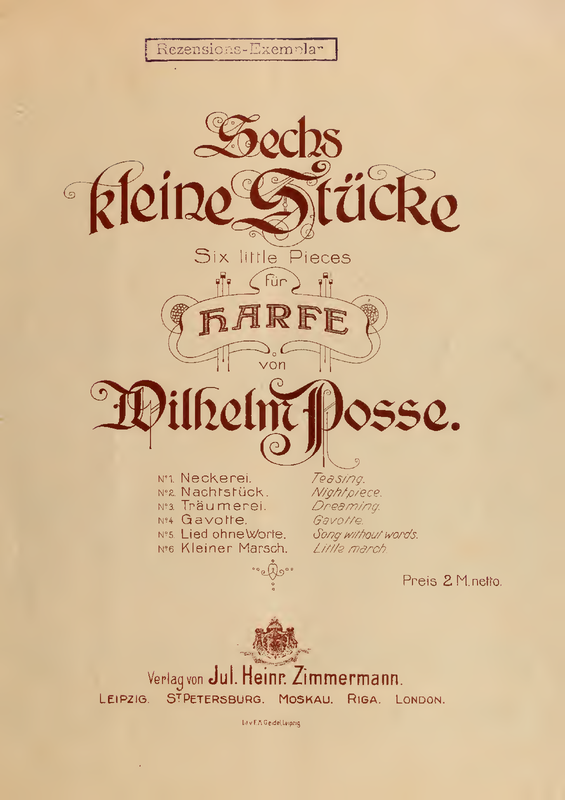 Rezensions-Exemplar
Sechs
kleine Stücke
Six little Pieces
für
HARFE
von
Wilhelm Posse.
No 1. Neckerei. Teasing.
No 2. Nachtstück. Nightpiece.
No 3. Träumerei. Dreaming.
No 4 Gavotte. Gavotte.
No 5 Lied ohne Worte. Song without words.
No 6 Kleiner Marsch. Little march
Preis 2 M. netto.
Verlag von Jul. Heinr. Zimmermann.
LEIPZIG. ST PETERSBURG. MOSKAU. RIGA. LONDON.
Lit v F.A. Geidel, Leipzig